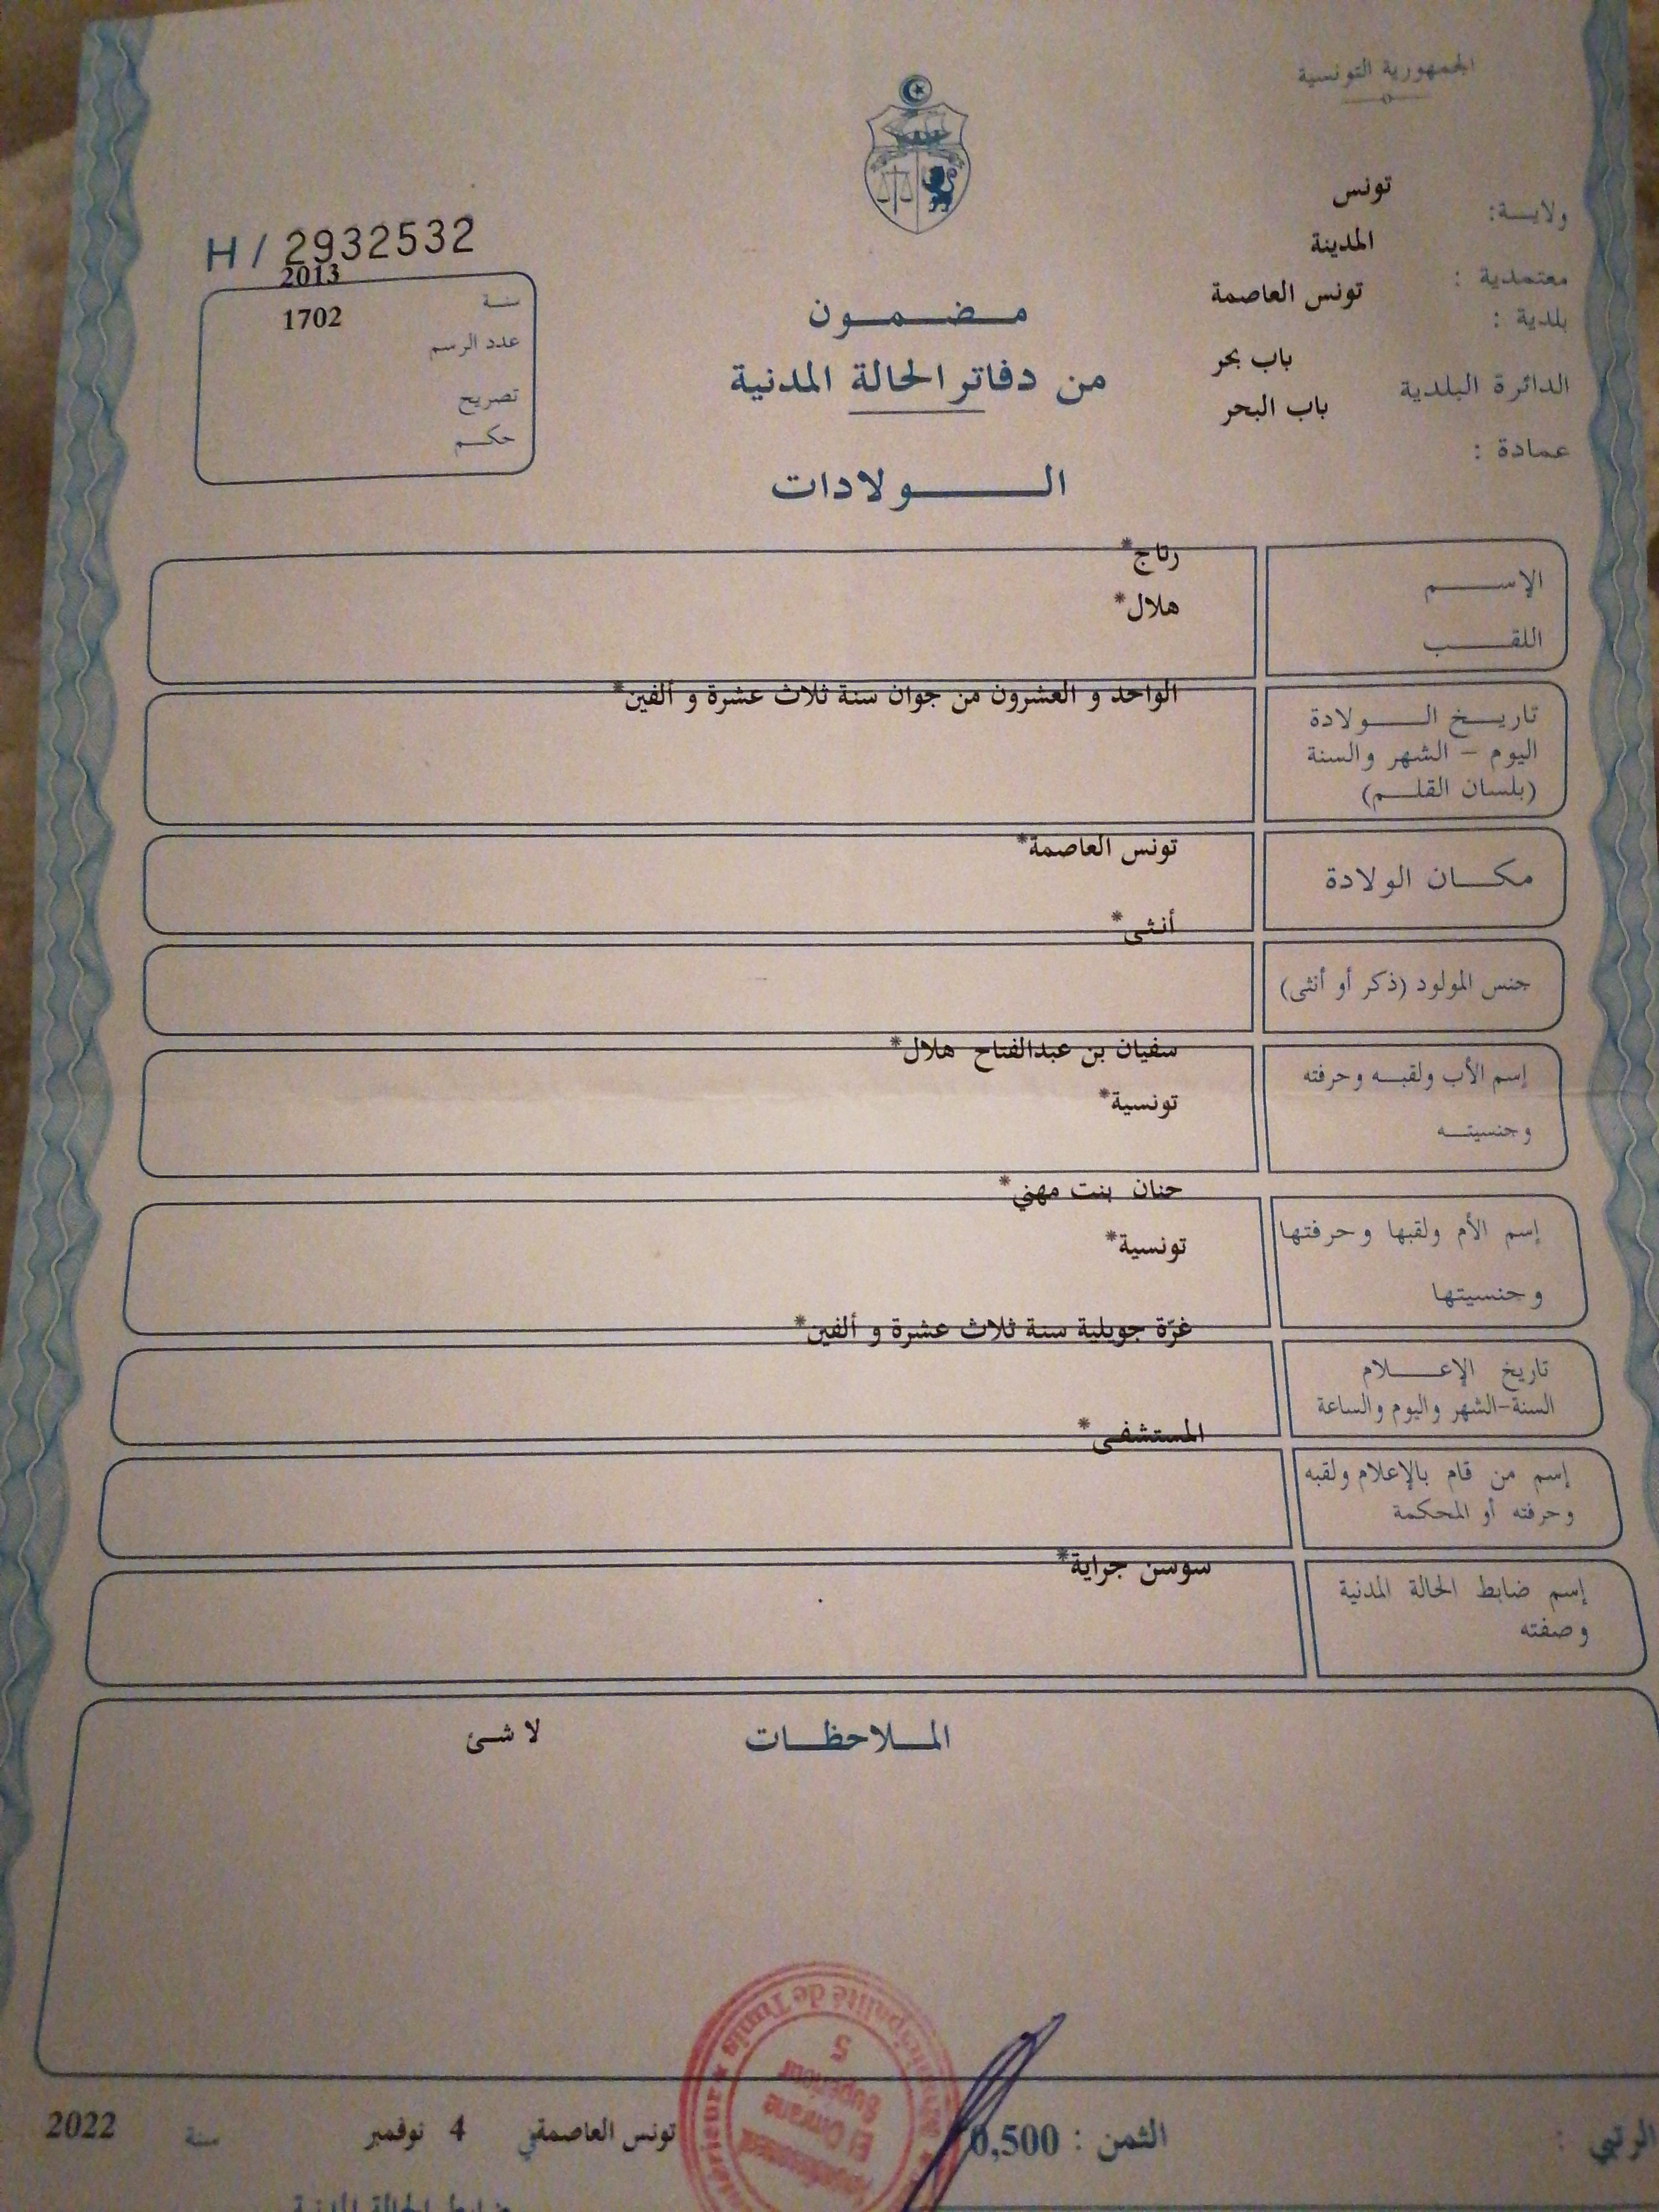 الجمهورية التونسية
ولايــة: تونس
معتمدية : المدينة
بلدية : تونس العاصمة
الدائرة البلدية باب بحر
عمادة : باب البحر
H / 2932532
سنــة 2013
عدد الرسم 1702
تصريح
حكــم
مـــضـــمـــون
من دفاتر الحالة المدنية
الـــــولادات
الإســـــم رتاج*
اللقـــــب هلال*
تاريــخ الـــــولادة الواحد و العشرون من جوان سنة ثلاث عشرة و ألفين*
اليوم – الشهر والسنة
(بلسان القلــم)
مكـــان الولادة تونس العاصمة*
جنس المولود (ذكر أو أنثى) أنثى*
إسم الأب ولقبــه وحرفته سفيان بن عبدالفتاح هلال*
وجنسيتــه تونسية*
إسم الأم ولقبها وحرفتها حنان بنت مهني*
وجنسيتها تونسية*
تاريخ الإعـــــلام غرّة جويلية سنة ثلاث عشرة و ألفين*
السنة-الشهر واليوم والساعة
إسم من قام بالإعلام ولقبه المستشفى*
وحرفته أو المحكمة
إسم ضابط الحالة المدنية سوسن جراية*
وصفته
المـــلاحظـــات لا شئ
Municipalité de Tunis
El Omrane
Supérieur
5
الثمن : 0,500
تونس العاصمة في 4 نوفمبر سنة 2022
ضابط الحالة المدنية